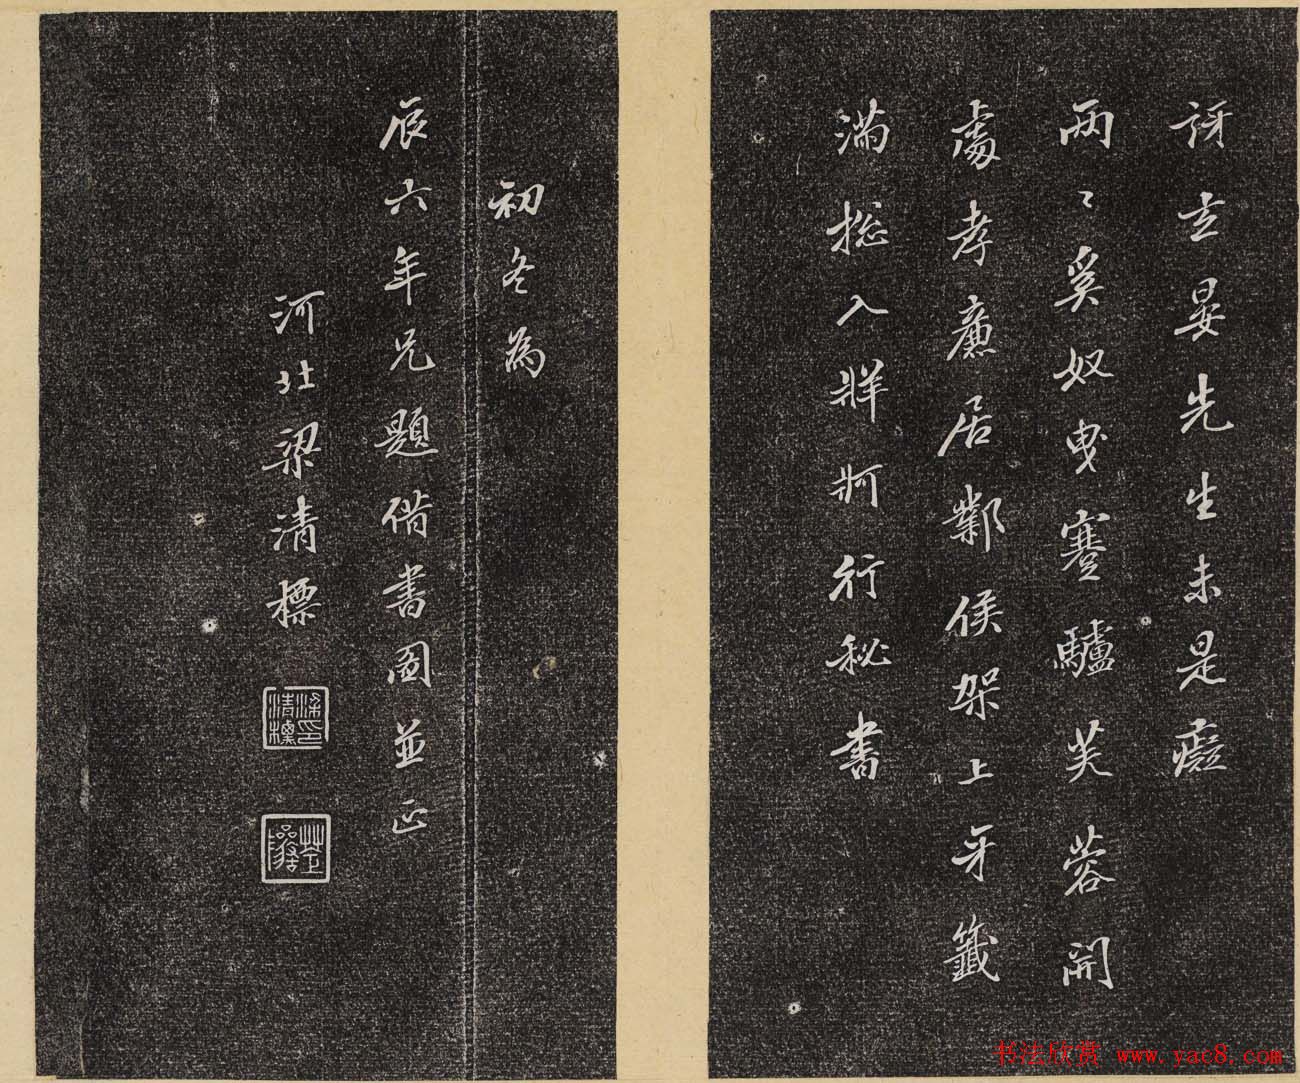 訝立晏先生未是癡
兩〻奚奴曳蹇驢芙蓉開
處孝廉居鄴侯架上牙籤
滿捴入牂牁行秘書
初冬為
辰六年兄題借書圖並正
河北梁清標
梁清標印
書法欣赏 www.yac8.com